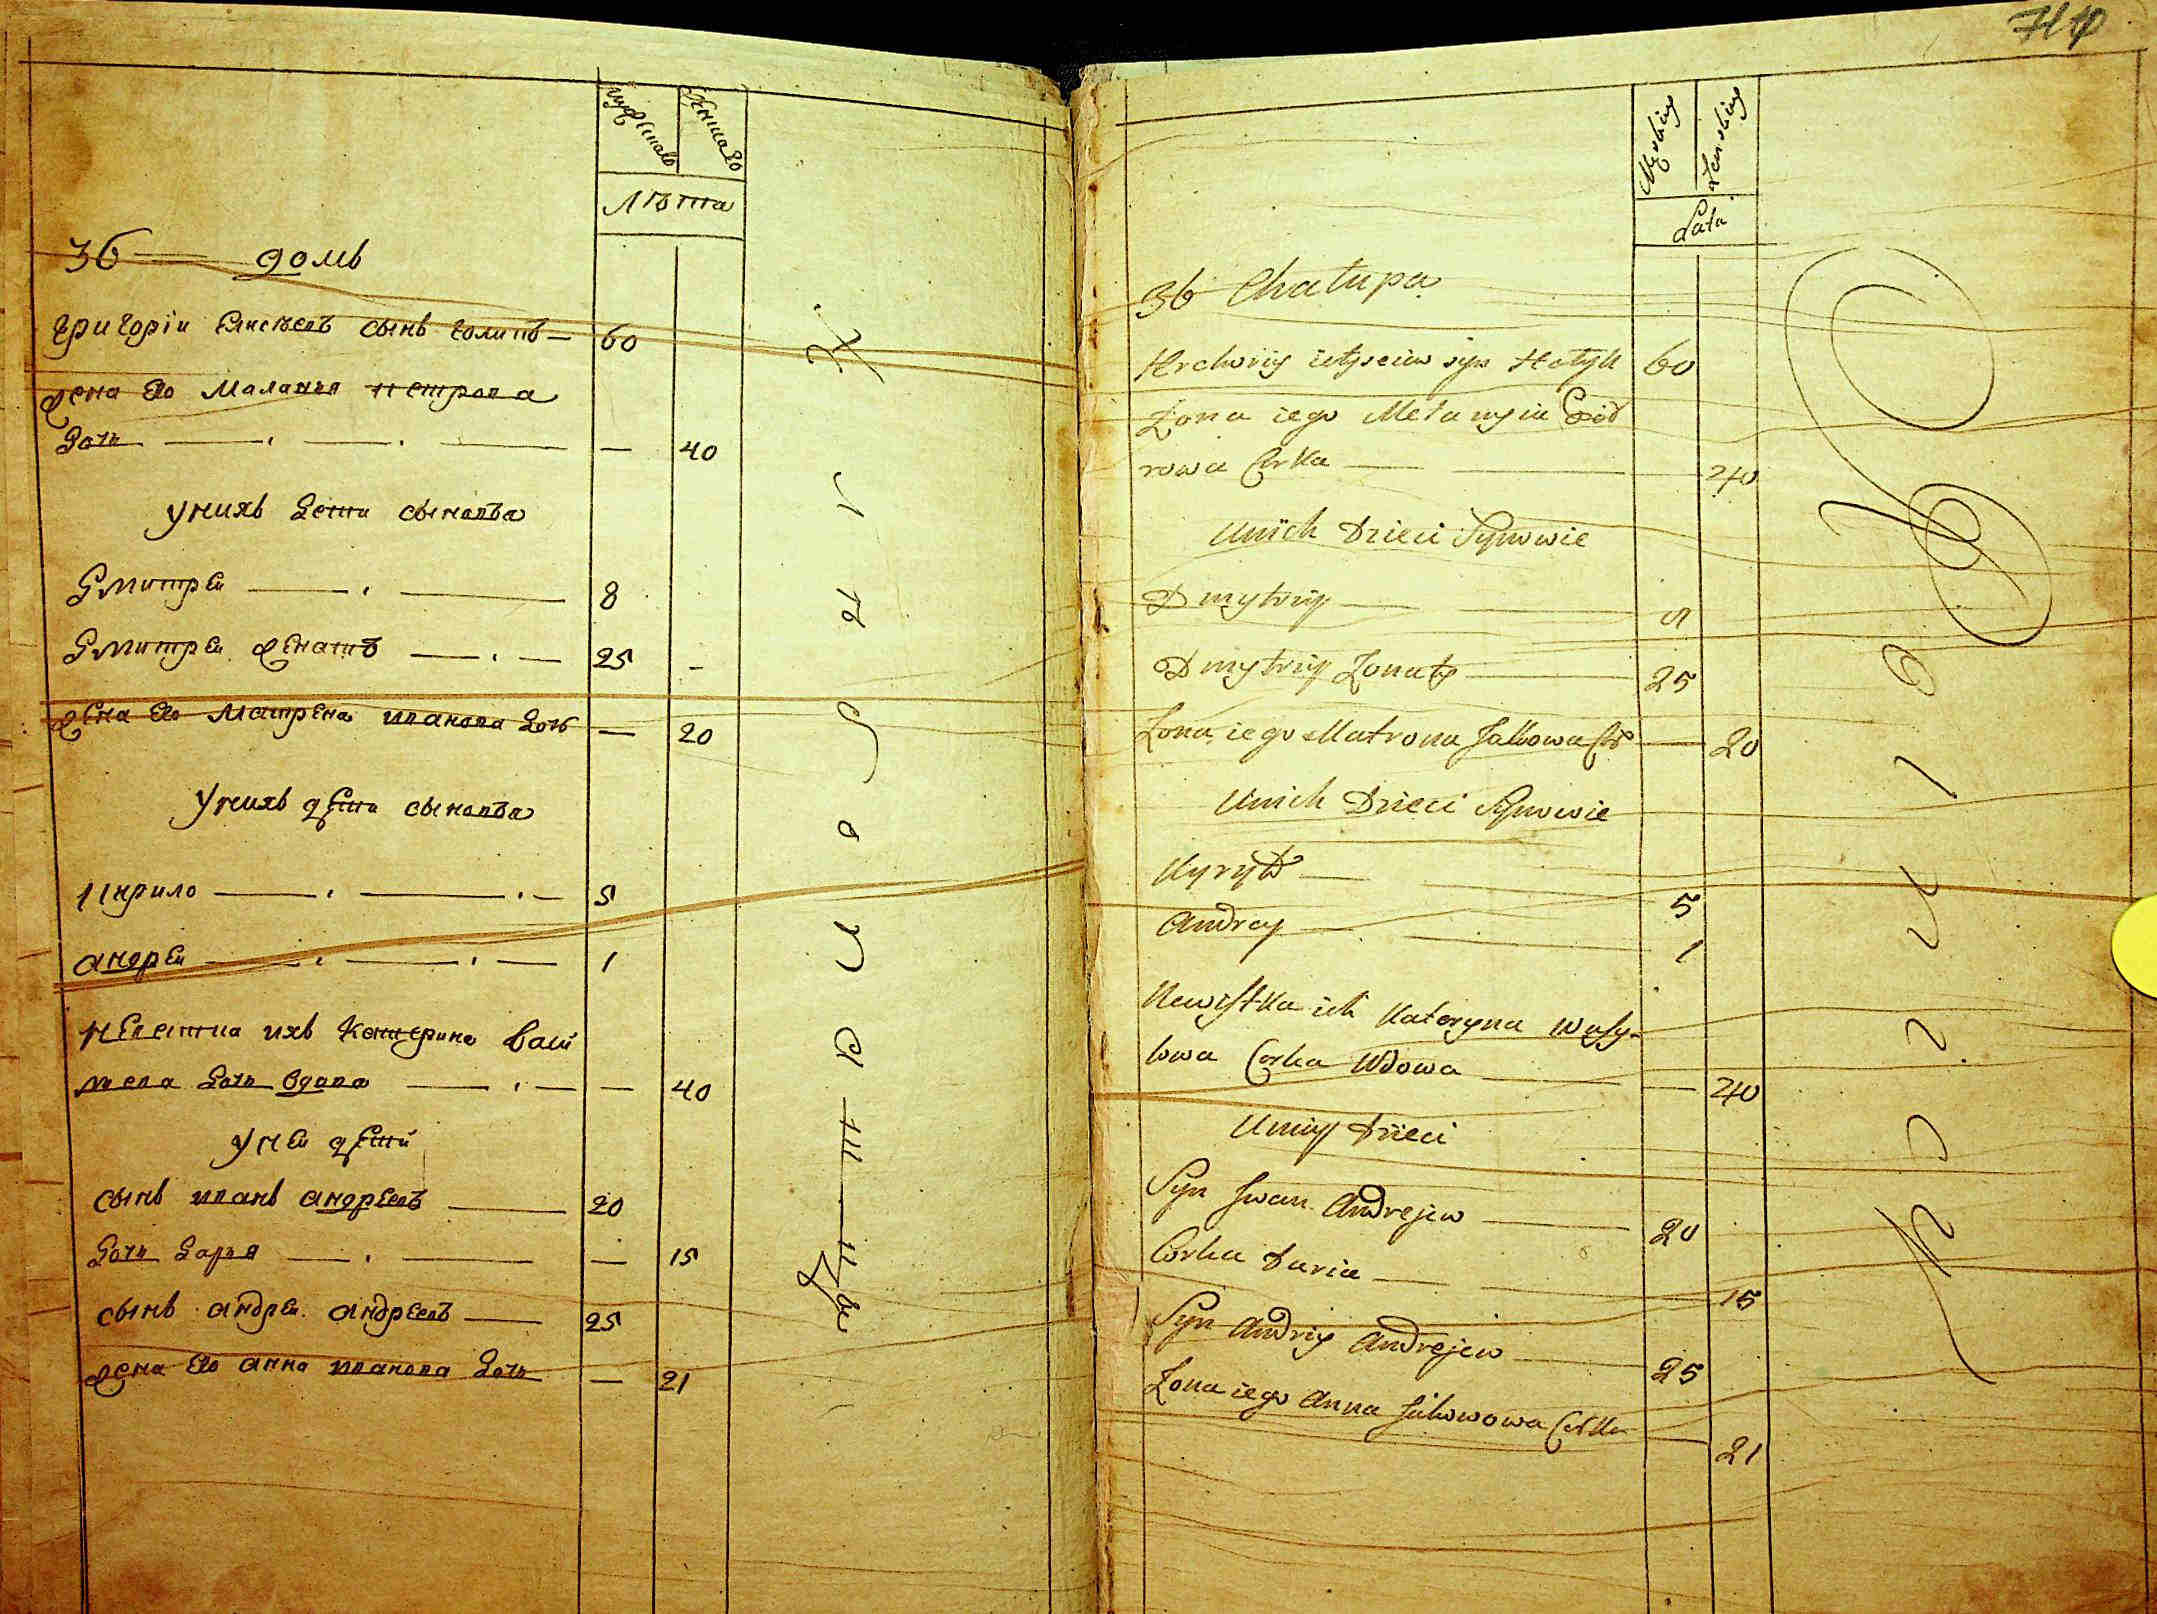 714
мужескаго
женскаго
Лѣта
36 — домъ
Григорій Елисѣевъ сынъ голикъ — 60
Жена его Маланья Петрова
дочь — — — 40
у нихъ дети сыновъя
Дмитрей — — 8
Дмитрей женатъ — — 25 -
Жена его Матрена иванова дочь — 20
У нихъ дети сыновъя
Кирило — — — 5
андрей — — — 1
невестка ихъ Катерина васи
лева дочь вдова — — — 40
у ней дети
сынъ иванъ андреевъ — 20
дочь дарья — — — 15
сынъ андрей андреевъ — 25
жена его анна иванова дочь — 21
Męskiey
Zenskiey
Lata
36 Chałupa
Hrehoriy syn Hołyk 60
Zona iego Mełanyia
rowa Corka — — 40
Unich Dzieci Synowie
Dmytriy — —
Dmytriy Zonaty — 25
Zona iego Matrona — 20
Unich Dzieci Synowie
Kyryło — 5
Andrey — 1
Newistka ich Kateryna Wasy-
lowa Corka Wdowa — — 40
Uniey Dzieci
Syn Iwan Andrejew — 20
Corka Daria — — 15
Syn Andriy Andrejew — 25
Zona iego Anna Corka — 21